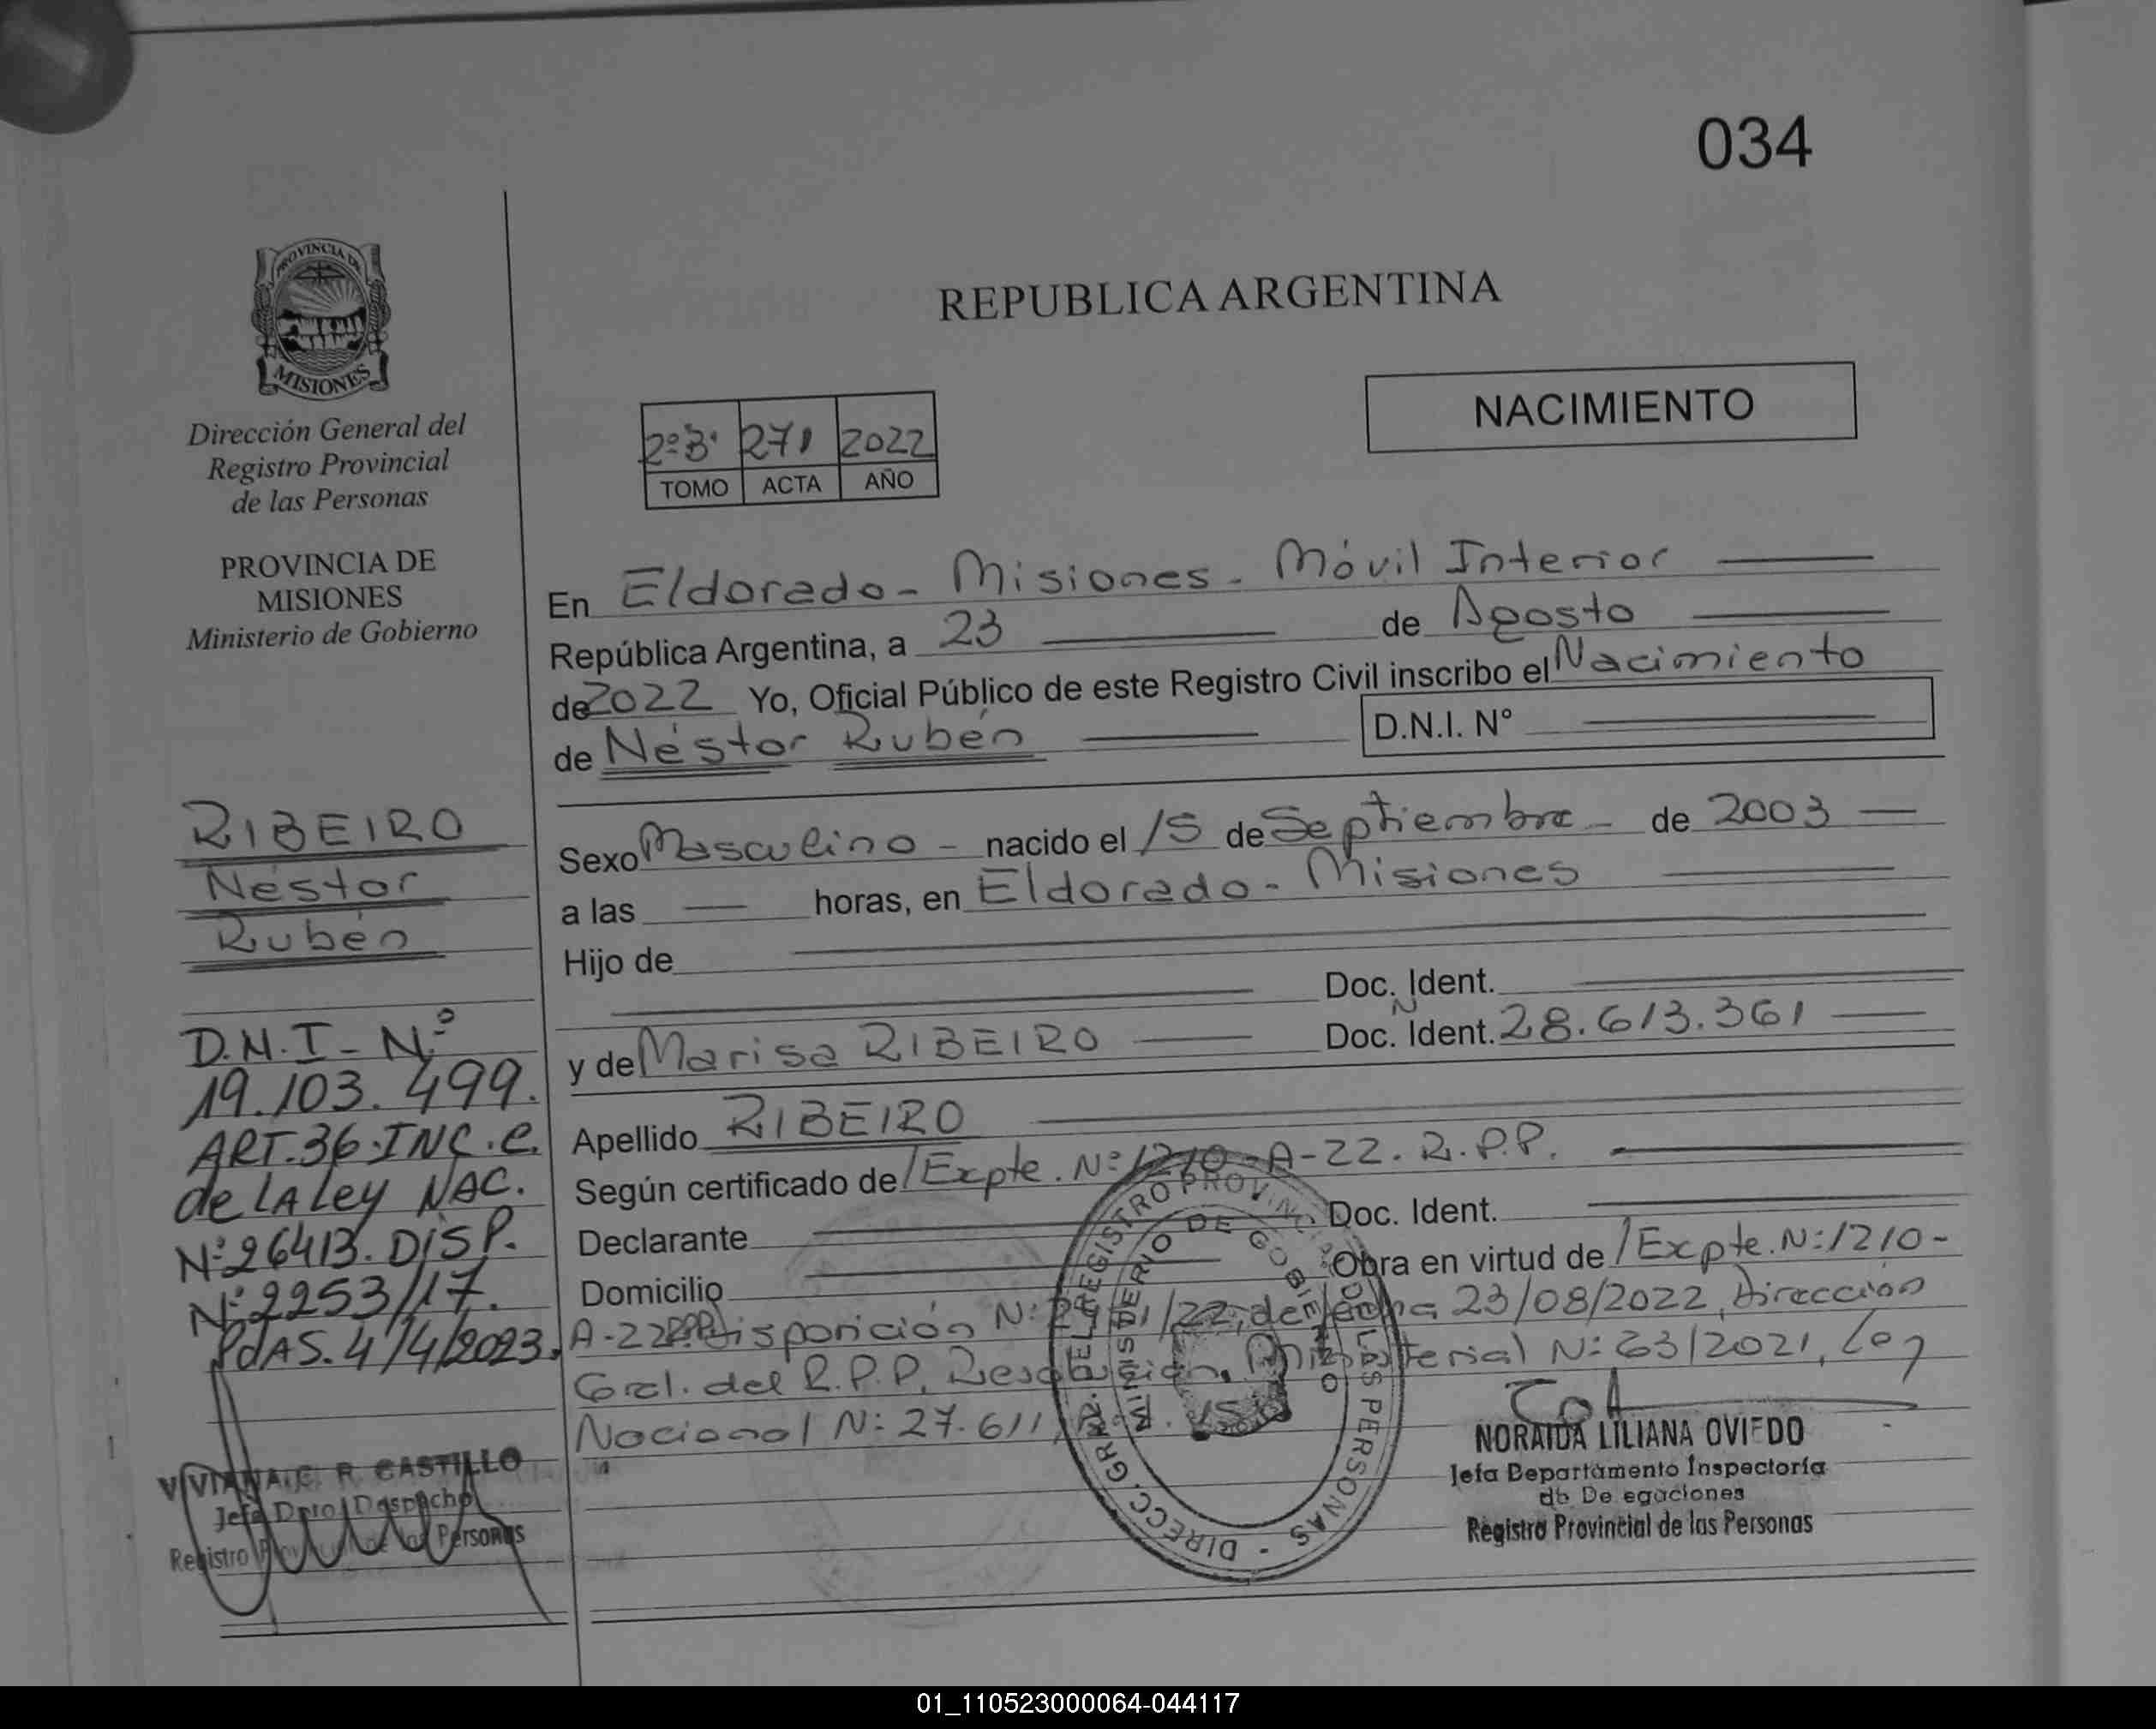 034
PROVINCIA DE
MISIONES
Dirección General del
Registro Provincial
de las Personas
PROVINCIA DE
MISIONES
Ministerio de Gobierno
REPUBLICA ARGENTINA
NACIMIENTO
2º B. 271 2022
TOMO ACTA AÑO
En Eldorado - Misiones - Móvil Interior
República Argentina, a 23 de Agosto
de 2022 Yo, Oficial Público de este Registro Civil inscribo el Nacimiento
de Néstor Rubén D.N.I. Nº
Sexo Masculino - nacido el 15 de Septiembre - de 2003
a las horas, en Eldorado - Misiones
Hijo de
Doc. Ident.
y de Marisa RIBEIRO Doc. Ident. 28.613.361
Apellido RIBEIRO
Según certificado de / Expte. Nº 1210-A-22. R.P.P.
Declarante Doc. Ident.
Domicilio Obra en virtud de / Expte. Nº 1210-
A-22 RPP, Disposición Nº /22, de fecha 23/08/2022, Dirección
Gral. del R.P.P, Resolución Ministerial Nº 63/2021, Ley
Nacional Nº 27.611,
RIBEIRO
Néstor
Rubén
D.N.I - Nº
19.103.499.
ART.36.INC.C.
de LA Ley NAC.
Nº 26413. DISP.
Nº 2253/17.
PdAS. 4/4/2023.
VIVIANA C. R CASTILLO
Jefa Dpto Despacho
Registro Provincial de las Personas
DIRECC. GRAL. DEL REGISTRO PROVINCIAL DE LAS PERSONAS -
MINISTERIO DE GOBIERNO
NORAIDA LILIANA OVIEDO
Jefa Departamento Inspectoría
de Delegaciones
Registro Provincial de las Personas
01_110523000064-044117